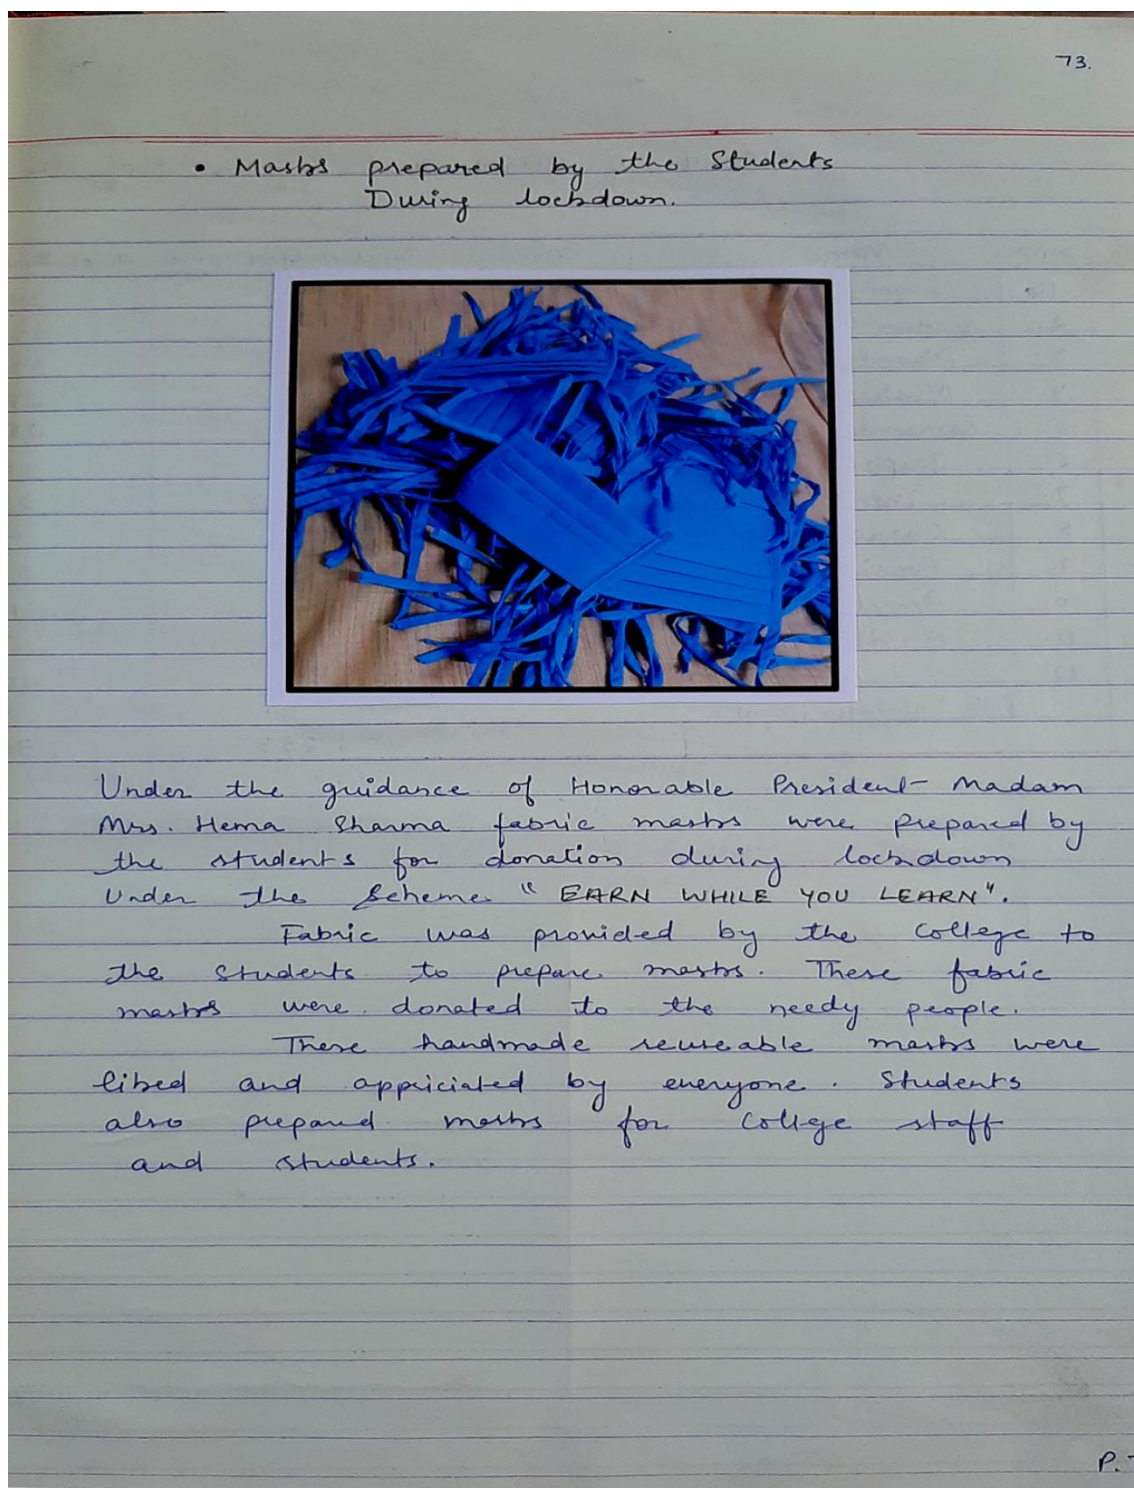 73.
• Masks prepared by the Students
During lockdown.
Under the guidance of Honorable President Madam
Mrs. Hema Sharma fabric masks were prepared by
the students for donation during lockdown
Under the Scheme "EARN WHILE YOU LEARN".
Fabric was provided by the College to
the students to prepare masks. These fabric
masks were donated to the needy people.
These handmade reuseable masks were
liked and appriciated by everyone. Students
also prepared masks for College staff
and students.
P.